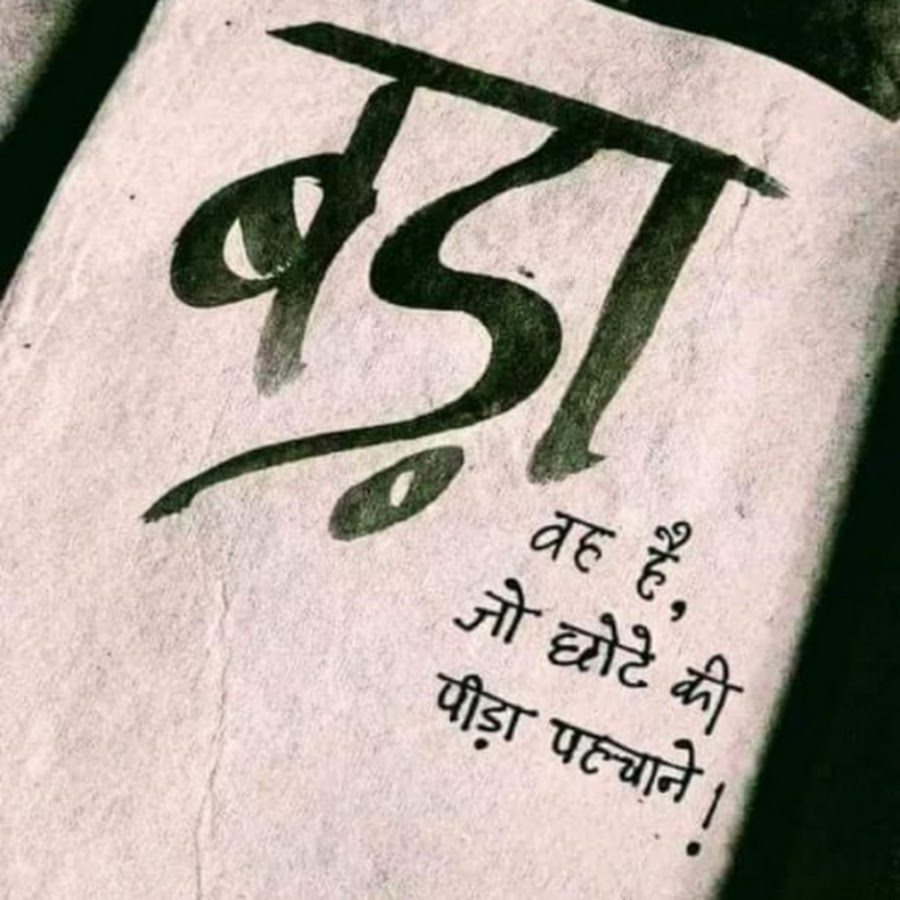 बड़ा
वह है,
जो छोटे की
पीड़ा पहचाने!